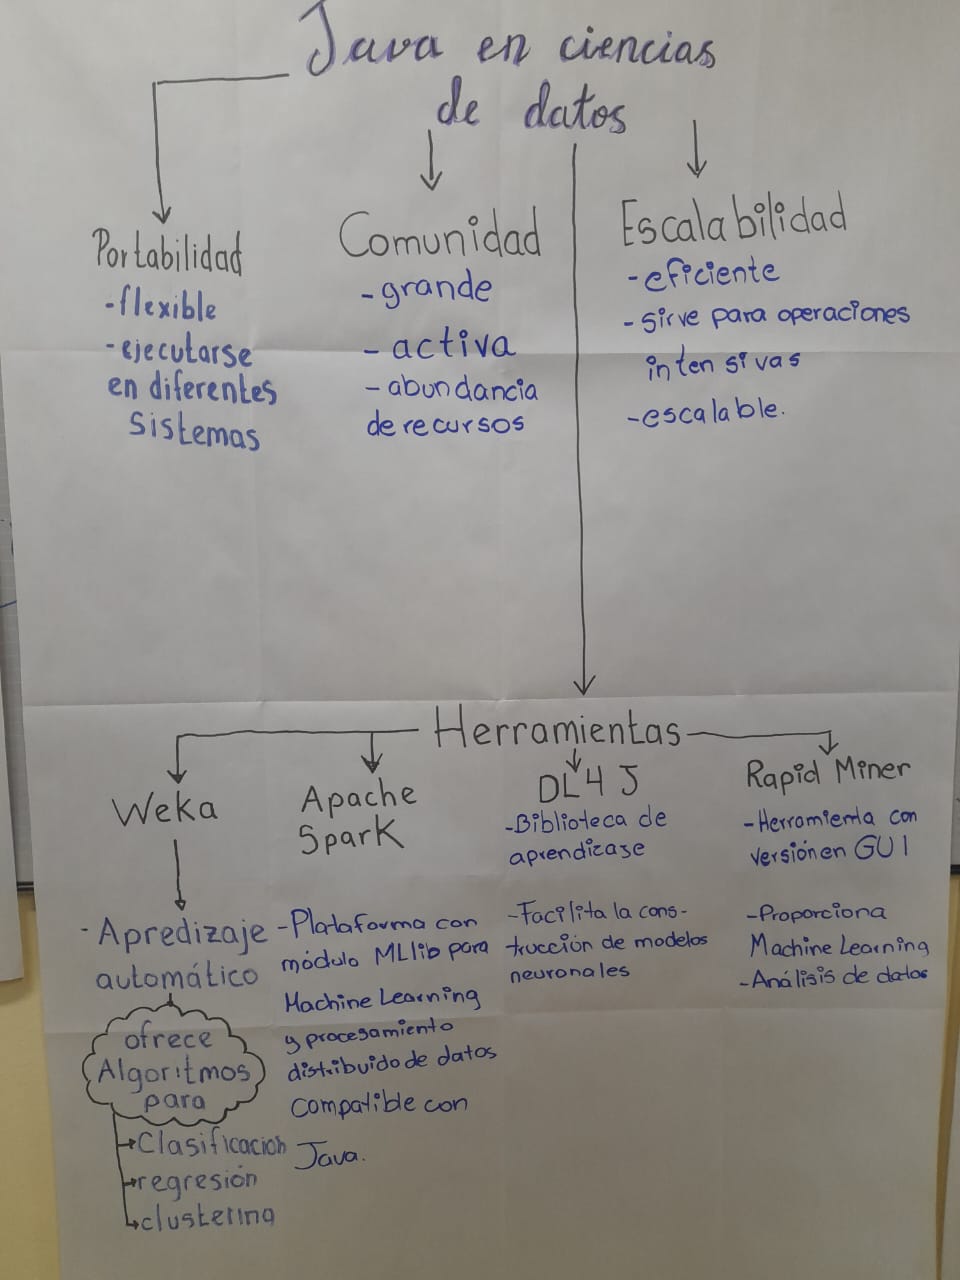 Java en ciencias
de datos
Portabilidad
-flexible
-ejecutarse
en diferentes
sistemas
Comunidad
-grande
-activa
-abundancia
de recursos
Escalabilidad
-eficiente
-sirve para operaciones
intensivas
-escalable.
Herramientas
Weka
-Apredizaje
automático
ofrece
Algoritmos
para
Clasificacion
regresión
clustering
Apache
Spark
-Plataforma con
módulo MLlib para
Machine Learning
y procesamiento
distribuido de datos
compatible con
Java.
DL4J
-Biblioteca de
aprendizase
-Facilita la cons-
trucción de modelos
neuronales
Rapid Miner
-Herramienta con
versión en GUI
-Proporciona
Machine Learning
-Análisis de datos